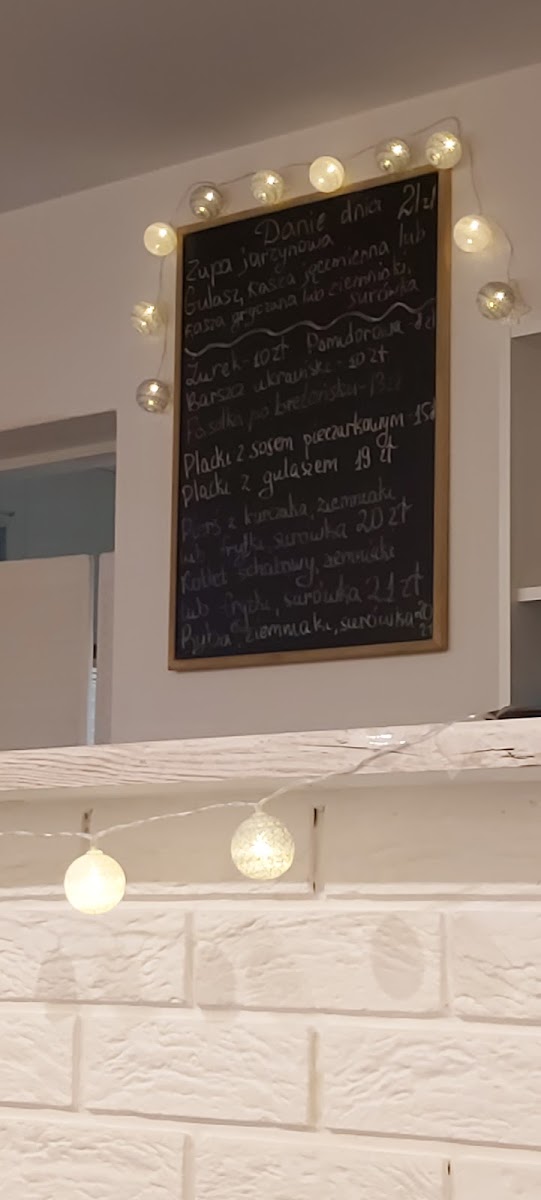 Danie dnia 21zł
Zupa jarzynowa
Gulasz, kasza jęczmienna lub
kasza gryczana lub ziemniaki,
surówka
Żurek-10zł Pomidorowa-8zł
Barszcz ukraiński-10zł
Fasolka po bretońsku-13zł
Placki z sosem pieczarkowym-15zł
Placki z gulaszem 19 zł
Pierś z kurczaka, ziemniaki
lub frytki, surówka 20 zł
Kotlet schabowy, ziemniaki
lub frytki, surówka 21 zł
Ryba, ziemniaki, surówka-20
zł